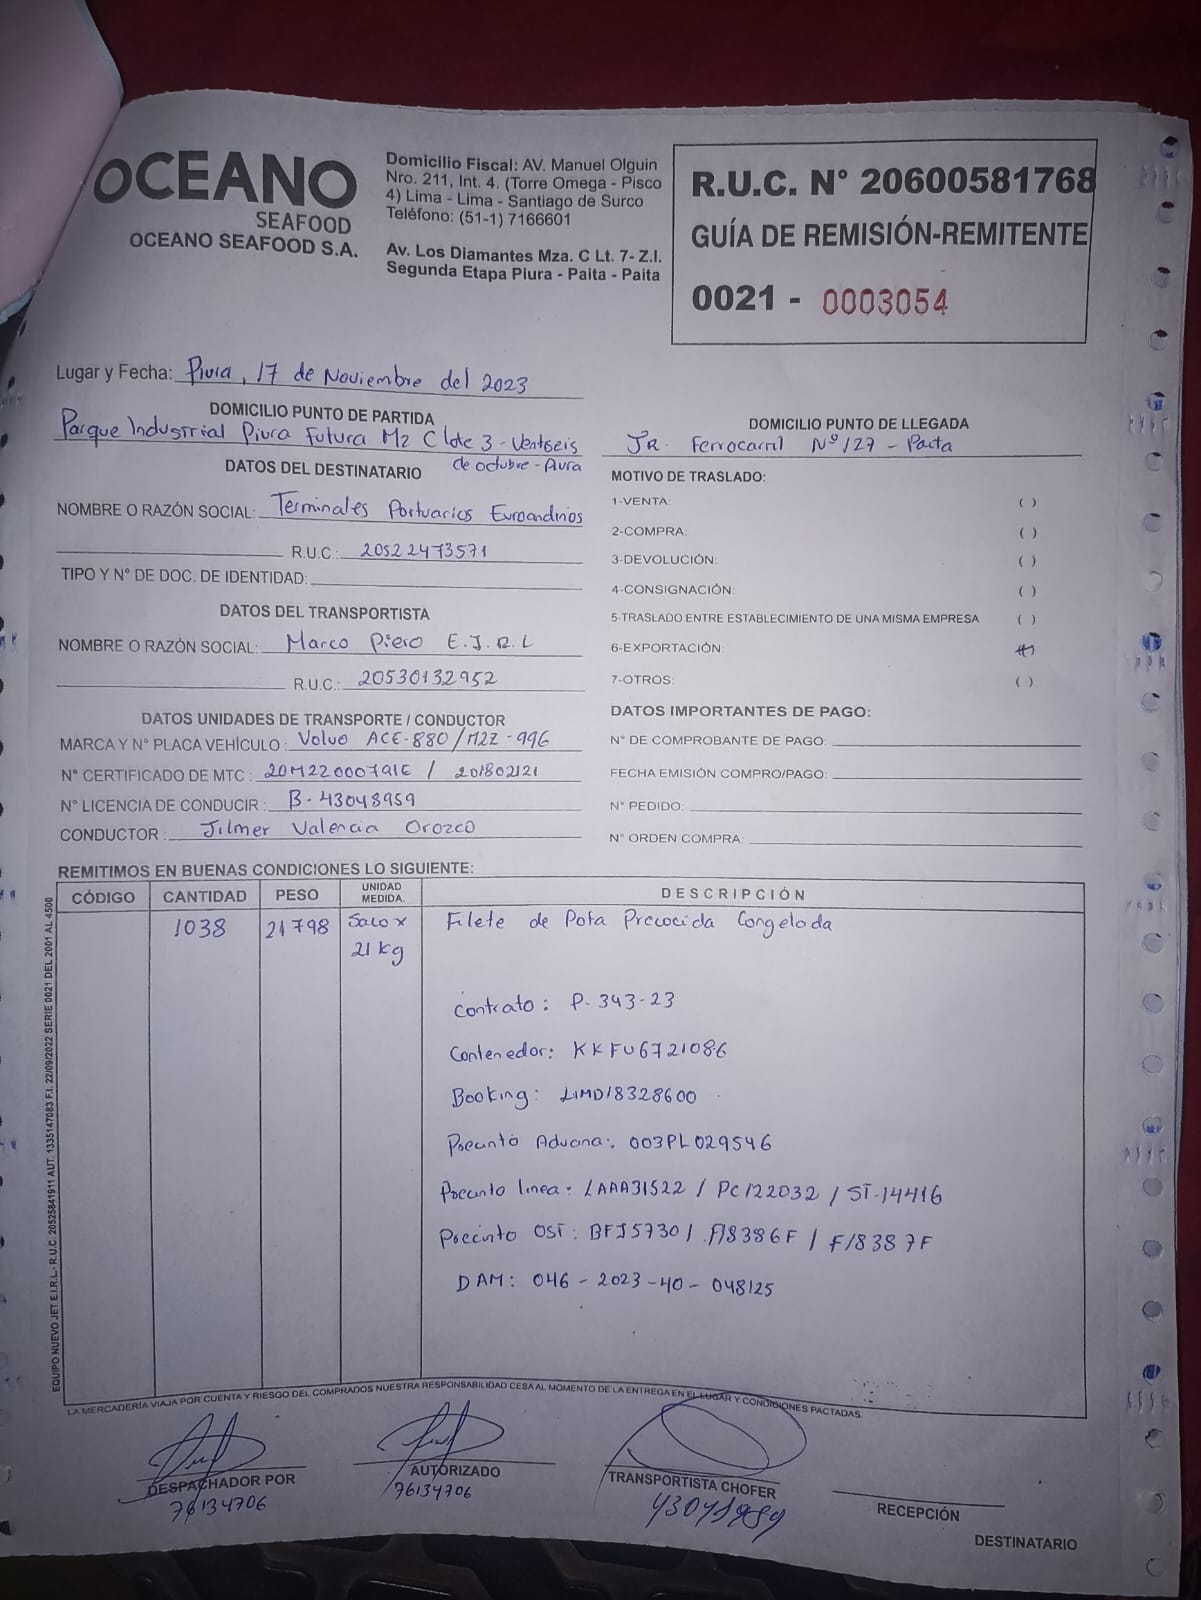 OCEANO
SEAFOOD
OCEANO SEAFOOD S.A.
Domicilio Fiscal: AV. Manuel Olguin
Nro. 211, Int. 4. (Torre Omega - Pisco
4) Lima - Lima - Santiago de Surco
Teléfono: (51-1) 7166601
Av. Los Diamantes Mza. C Lt. 7- Z.I.
Segunda Etapa Piura - Paita - Paita
R.U.C. N° 20600581768
GUÍA DE REMISIÓN-REMITENTE
0021 - 0003054
Lugar y Fecha: Piura, 17 de Noviembre del 2023
DOMICILIO PUNTO DE PARTIDA
Parque Industrial Piura Futura Mz C lote 3 - Ventseis
de octubre - Piura
DOMICILIO PUNTO DE LLEGADA
JR. Ferrocarril N° 127 - Paita
DATOS DEL DESTINATARIO
NOMBRE O RAZÓN SOCIAL: Terminales Portuarios Euroandinos
R.U.C.: 20522473571
TIPO Y N° DE DOC. DE IDENTIDAD:
DATOS DEL TRANSPORTISTA
NOMBRE O RAZÓN SOCIAL: Marco Piero E.I.R.L
R.U.C.: 20530132952
DATOS UNIDADES DE TRANSPORTE / CONDUCTOR
MARCA Y N° PLACA VEHÍCULO: Volvo ACE-880 / M2Z-996
N° CERTIFICADO DE MTC: 20M22000791E / 201802121
N° LICENCIA DE CONDUCIR: B-43048959
CONDUCTOR: Jilmer Valencia Orozco
MOTIVO DE TRASLADO:
1-VENTA: ( )
2-COMPRA: ( )
3-DEVOLUCIÓN: ( )
4-CONSIGNACIÓN: ( )
5-TRASLADO ENTRE ESTABLECIMIENTO DE UNA MISMA EMPRESA ( )
6-EXPORTACIÓN:
7-OTROS: ( )
DATOS IMPORTANTES DE PAGO:
N° DE COMPROBANTE DE PAGO:
FECHA EMISIÓN COMPRO/PAGO:
N° PEDIDO:
N° ORDEN COMPRA:
REMITIMOS EN BUENAS CONDICIONES LO SIGUIENTE:
CÓDIGO CANTIDAD PESO UNIDAD MEDIDA. DESCRIPCIÓN
1038 21798 Saco x Filete de Pota Precocida Congelada
21 kg
Contrato: P-343-23
Contenedor: KKFU6721086
Booking: LIMD18328600
Precinto Aduana: 003PL029546
Precinto linea: LAAA31522 / PC122032 / ST-14416
Precinto OSI: BFI5730 / F18386F / F18387F
DAM: 046 - 2023 - 40 - 048125
EQUIPO NUEVO JET E.I.R.L.- R.U.C. 20525841911 AUT. 1335147083 F.I. 22/09/2022 SERIE 0021 DEL 2001 AL 4500
LA MERCADERÍA VIAJA POR CUENTA Y RIESGO DEL COMPRADOS NUESTRA RESPONSABILIDAD CESA AL MOMENTO DE LA ENTREGA EN EL LUGAR Y CONDICIONES PACTADAS
DESPACHADOR POR
76134706
AUTORIZADO
76134706
TRANSPORTISTA CHOFER
RECEPCIÓN
DESTINATARIO